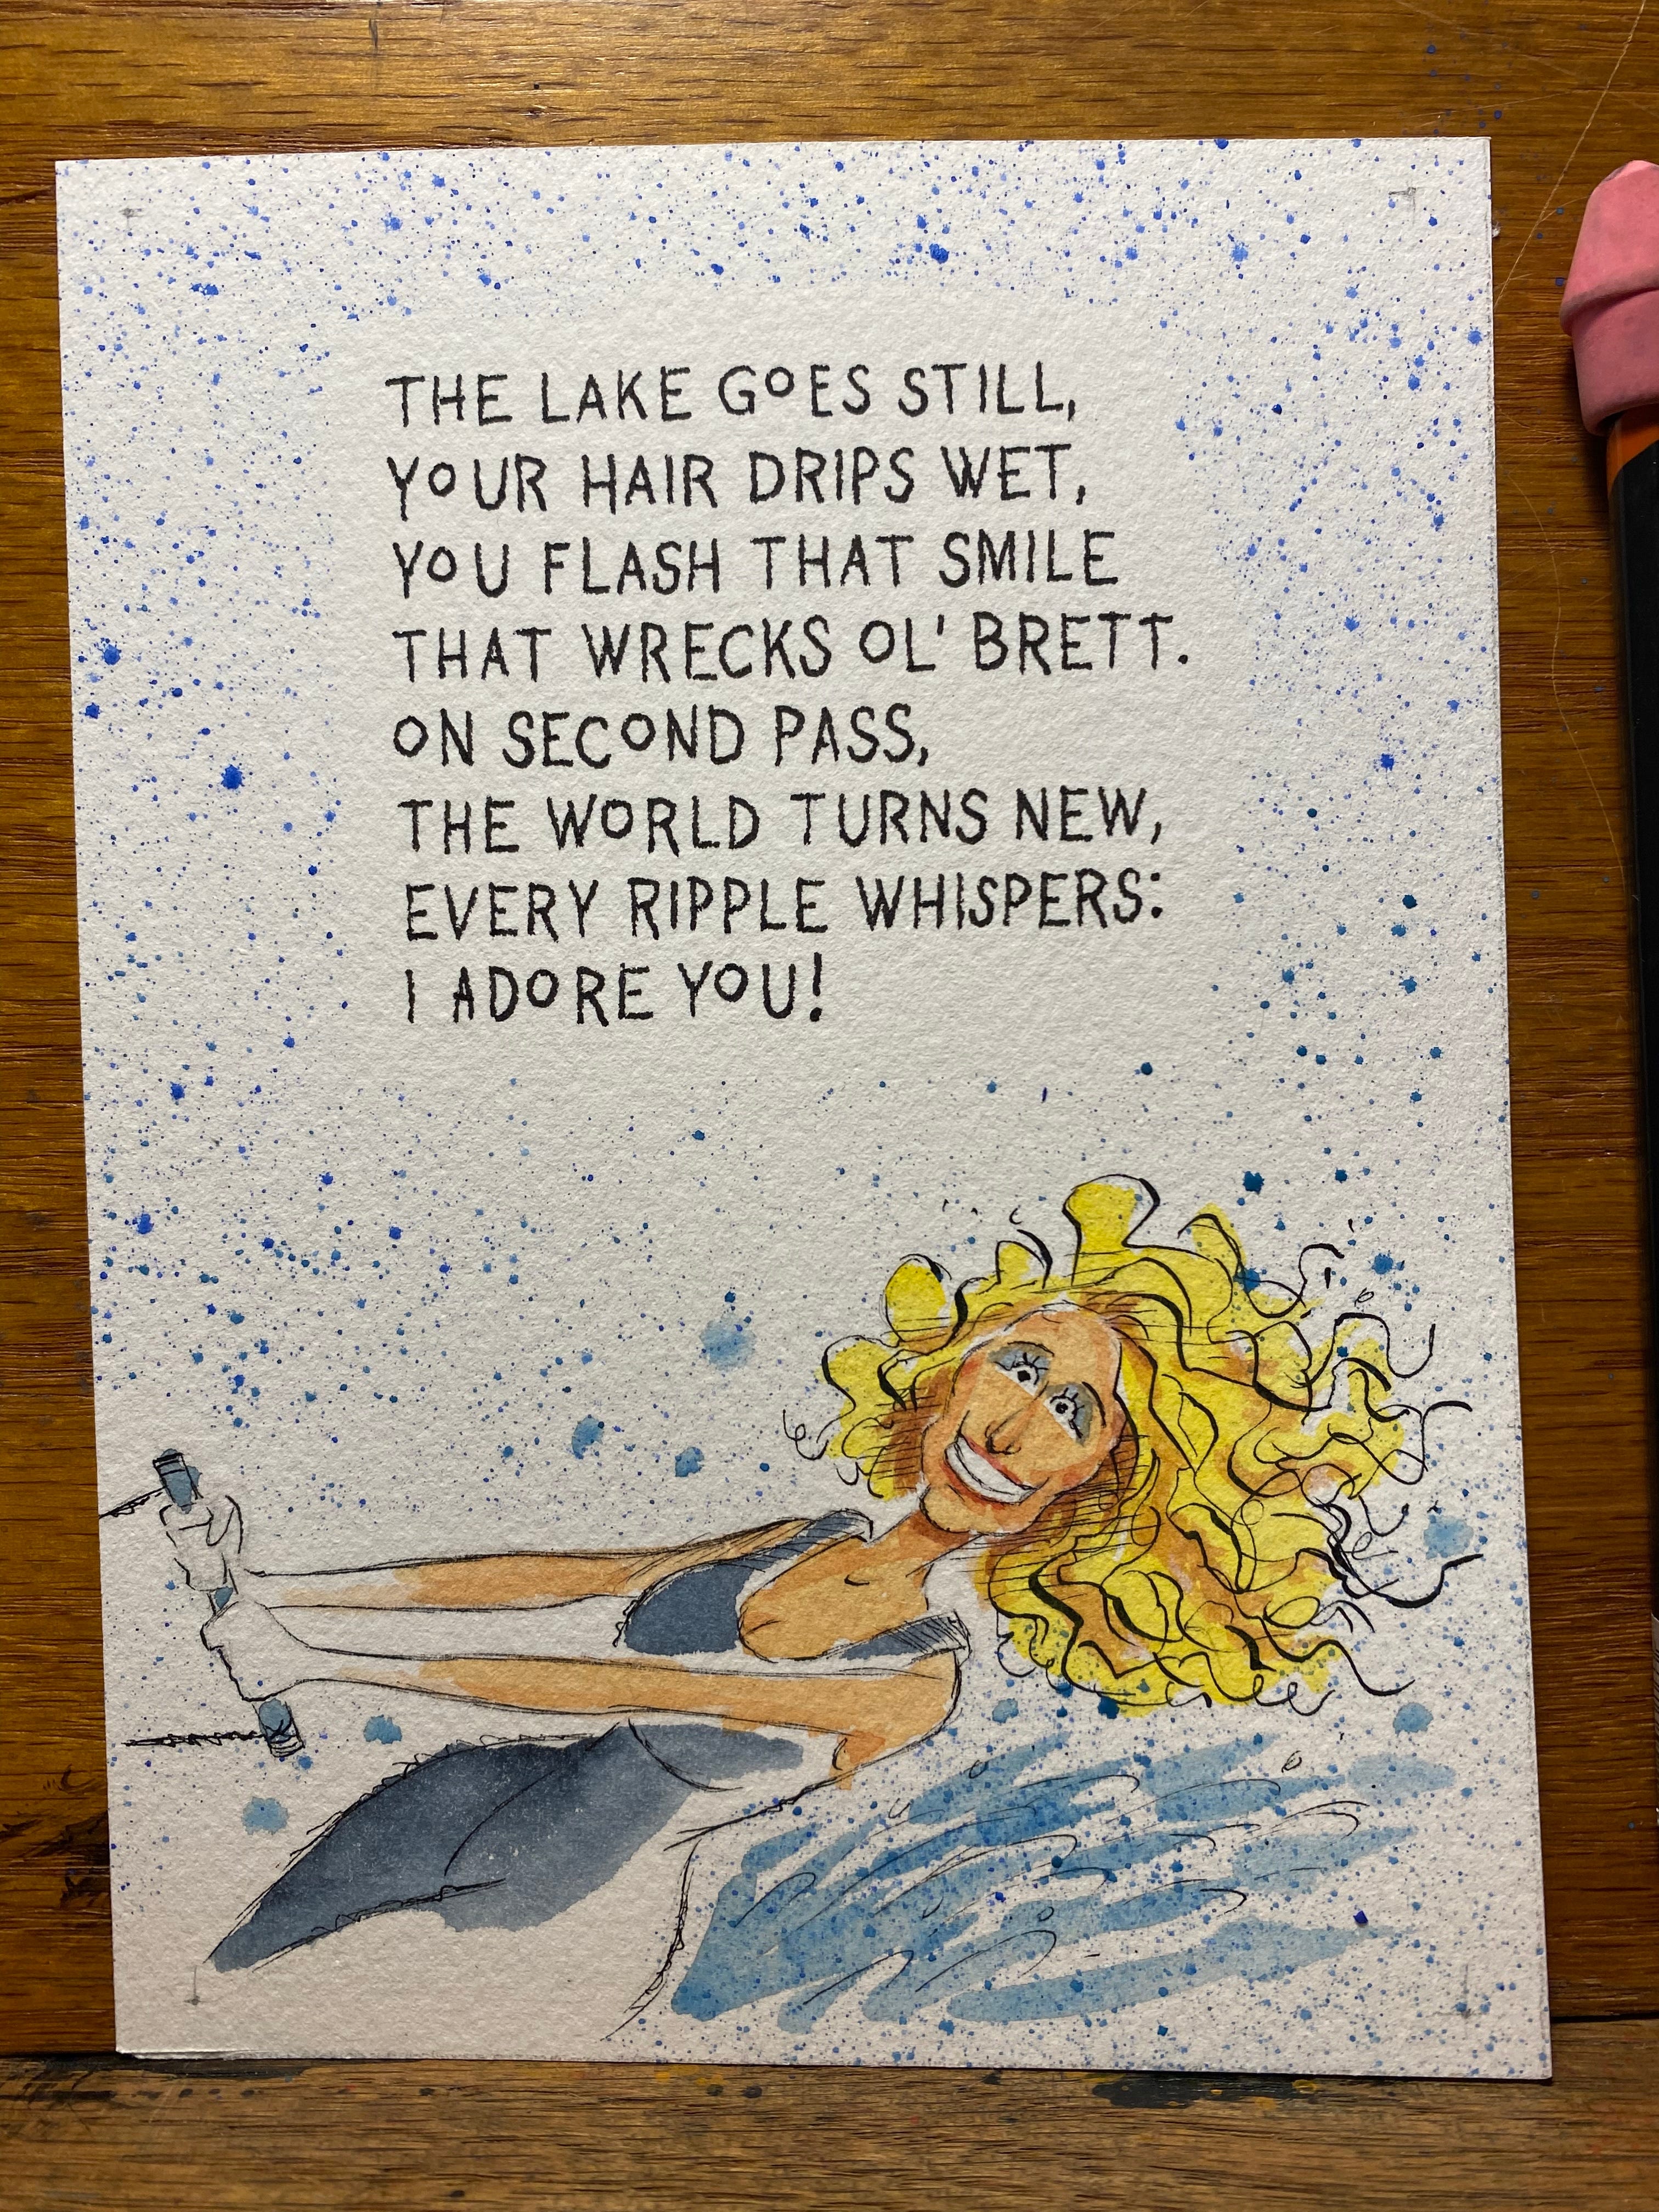 THE LAKE GOES STILL,
YOUR HAIR DRIPS WET,
YOU FLASH THAT SMILE
THAT WRECKS OL' BRETT.
ON SECOND PASS,
THE WORLD TURNS NEW,
EVERY RIPPLE WHISPERS:
I ADORE YOU!